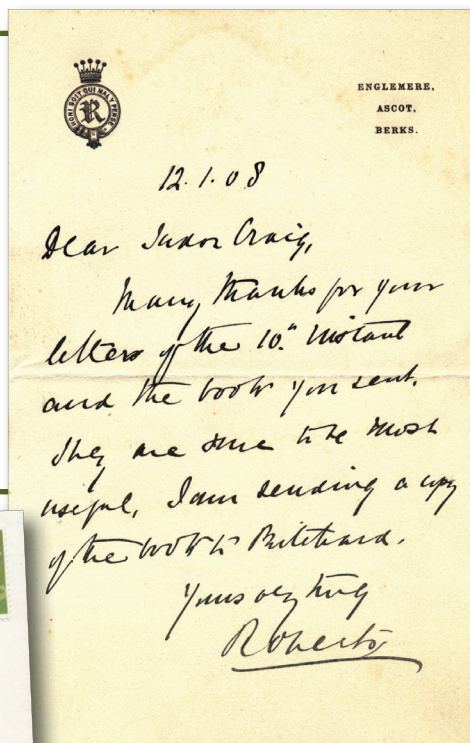 HONI SOIT QUI MAL Y PENSE
R
ENGLEMERE,
ASCOT,
BERKS.
12.1.08
Dear Tudor Craig,
Many thanks for your
letters of the 10th Instant
and the books you sent.
They are sure to be most
useful, I am sending a copy
of the book to
Yours very truly
Roberts